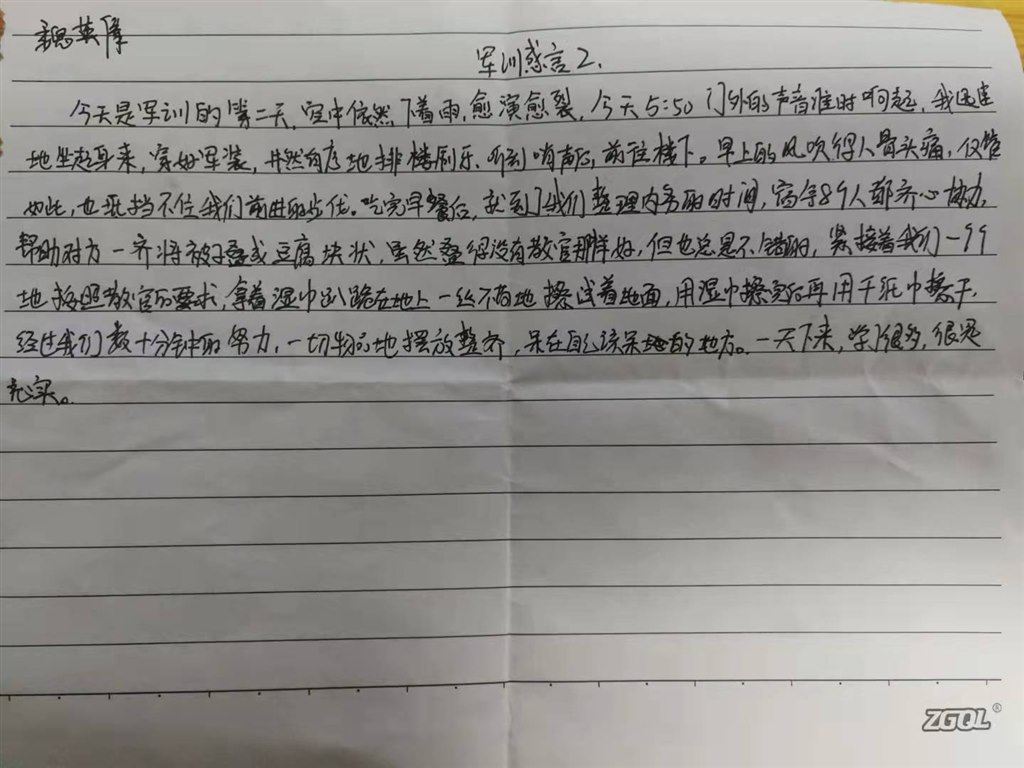 魏英
军训感言2.
今天是军训的第二天,空中依然下着雨,愈演愈裂,今天5:50门外的声音准时响起,我迅速
地坐起身来,穿好军装,井然有序地排楼刷牙.听到哨声后,前往楼下。早上的风吹得人骨头痛,仅管
如此,也抵挡不住我们前进的步伐。吃完早餐后,就到了我们整理内务的时间,宿舍89人都齐心协力,
帮助对方一齐将被子叠成豆腐块状,虽然叠得没有教官那样好,但也总是不错的,紧接着我们一个个
地按照教官的要求,拿着湿巾趴跪在地上一丝不苟地擦试着地面,用湿巾擦完后再用干纸巾擦干.
经过我们数十分钟的努力,一切物品地摆放整齐,呆在自己该呆地的地方。一天下来,学了很多,很是
充实。
ZGQL®